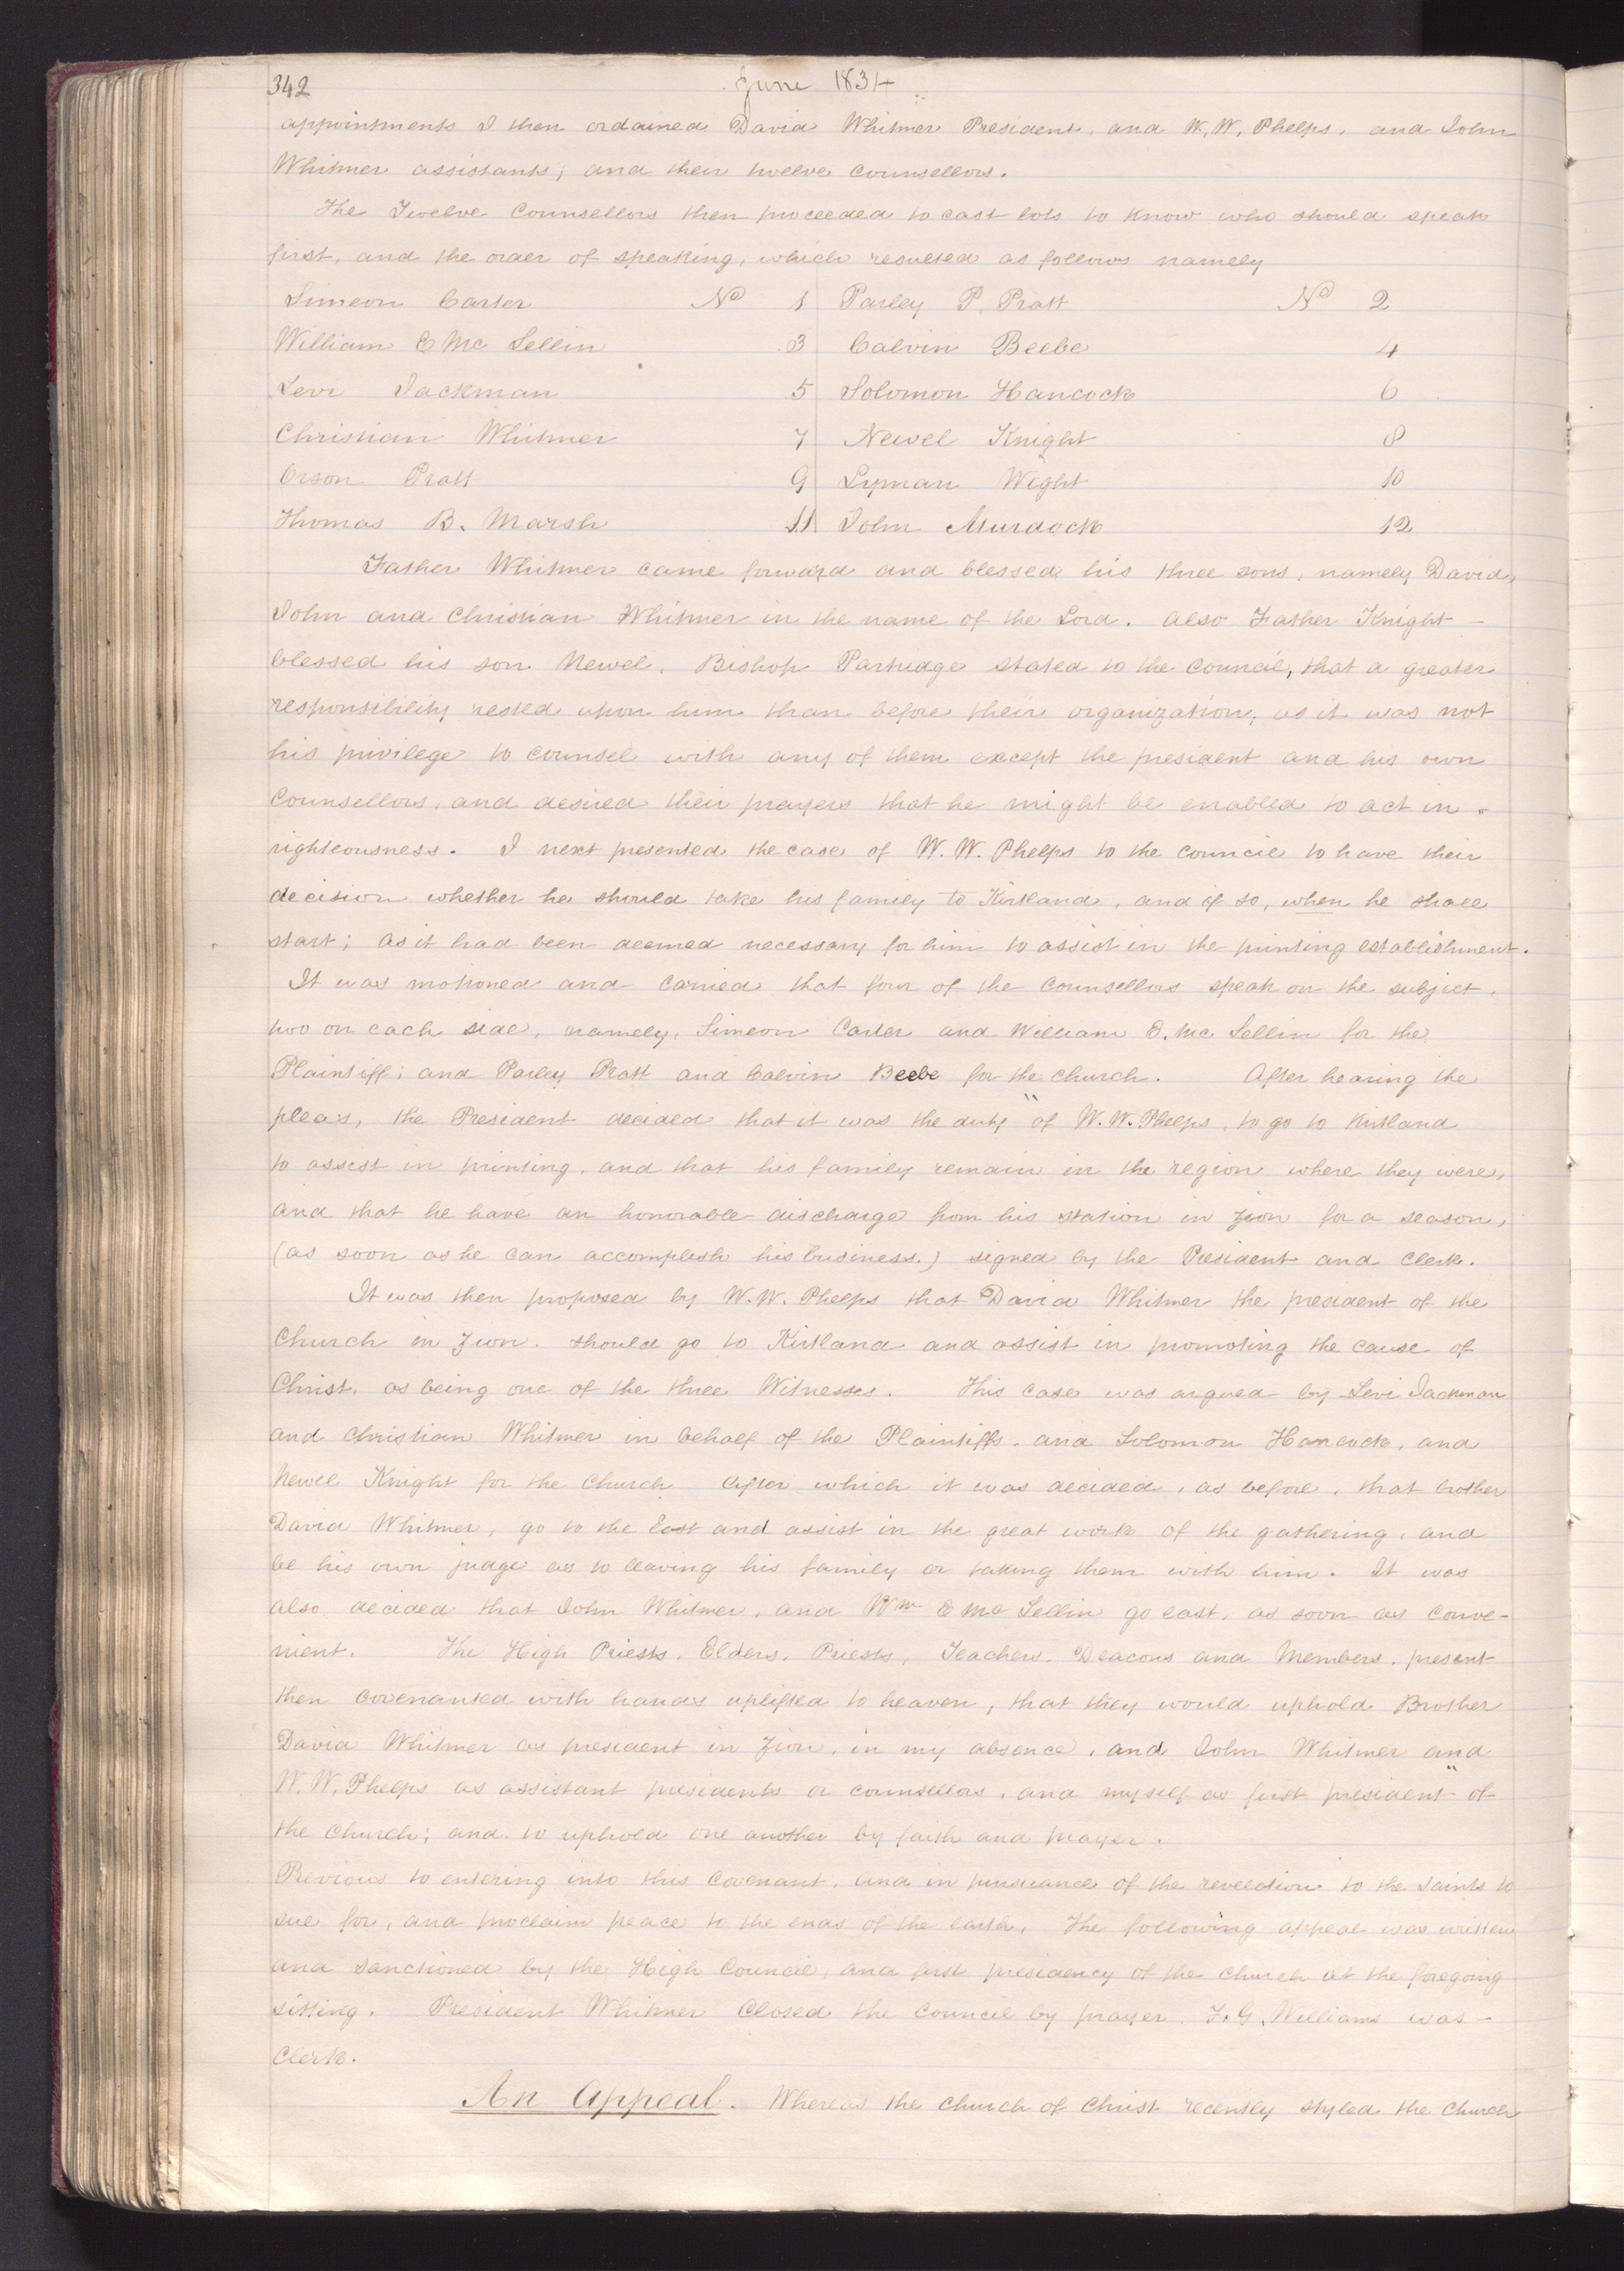 342
June 1834
appointments I then ordained David Whitmer President, and W. W. Phelps, and John
Whitmer assistants; and their twelve counsellors.
The Twelve Counsellors then proceeded to cast lots to know who should speak
first, and the order of speaking, which resulted as follows namely
Simeon Carter No 1 Parley P. Pratt No 2
William E Mc Lellin 3 Calvin Beebe 4
Levi Jackman 5 Solomon Hancock 6
Christian Whitmer 7 Newel Knight 8
Orson Pratt 9 Lyman Wight 10
Thomas B. Marsh 11 John Murdock 12
Father Whitmer came forward and blessed his three sons, namely David,
John and Christian Whitmer in the name of the Lord. also Father Knight
blessed his son Newel. Bishop Partridge stated to the council, that a greater
responsibility rested upon him than before their organization, as it was not
his privilege to counsel with any of them except the president and his own
counsellors, and desired their prayers that he might be enabled to act in
righteousness. I next presented the case of W. W. Phelps to the council to have their
decision whether he should take his family to Kirtland, and if so, when he shall
start; as it had been deemed necessary for him to assist in the printing establishment.
It was motioned and carried that four of the counsellors speak on the subject,
two on each side, namely, Simeon Carter and William E. Mc Lellin for the
Plaintiff; and Parley Pratt and Calvin Beebe for the church. After hearing the
pleas, the President decided that it was the duty "of W. W. Phelps, to go to Kirtland
to assist in printing, and that his family remain in the region where they were,
and that he have an honorable discharge from his station in Zion for a season,
(as soon as he can accomplish his business.) signed by the President and clerk.
It was then proposed by W. W. Phelps that David Whitmer the president of the
Church in Zion. should go to Kirtland and assist in promoting the cause of
Christ, as being one of the three Witnesses. This case was argued by Levi Jackman
and Christian Whitmer in behalf of the Plaintiffs, and Solomon Hancock, and
Newel Knight for the Church After which it was decided, as before, that brother
David Whitmer, go to the East and assist in the great work of the gathering, and
be his own judge as to leaving his family or taking them with him. It was
also decided that John Whitmer, and Wm E Mc Lellin go east, as soon as conve-
nient. The High Priests, Elders, Priests, Teachers, Deacons and Members, present
then covenanted with hands uplifted to heaven, that they would uphold Brother
David Whitmer as president in Zion, in my absence, and John Whitmer and
W. W. Phelps as assistant presidents or counsellors, and myself as first president" of
the church; and to uphold one another by faith and prayer.
Previous to entering into this covenant, and in pursuance of the revelation to the saints to
sue for, and proclaim peace to the ends of the earth, The following appeal was written
and sanctioned by the High Council, and first presidency of the church at the foregoing
sitting. President Whitmer Closed the council by prayer. F. G. Williams was -
Clerk.
An Appeal. Whereas the church of Christ recently styled the church